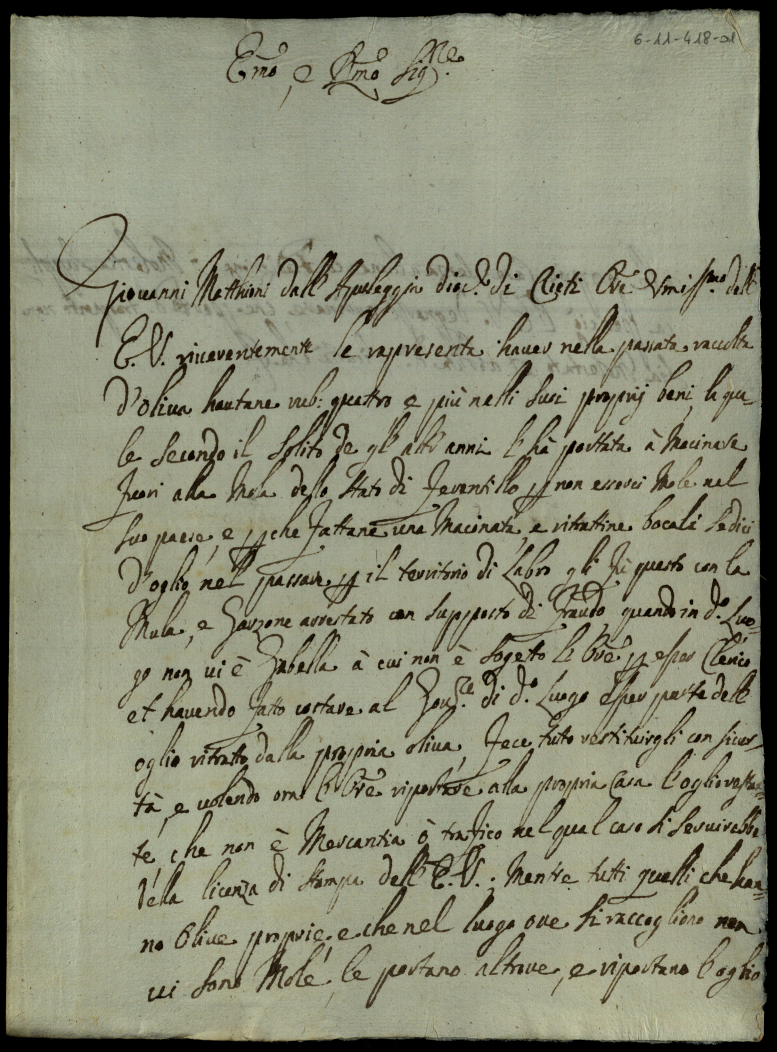 6-11-418-01
Em͠o, e Rm͠o Sig.re
Giovanni Matthioni dall' Apoleggia dioc.e di Rieti Ore Vmiss.mo dell'
E. V. riuerentemente le rapresenta hauer nella passata raccolta
d'oliua hautane rub: quatro e più nelli suoi proprij beni, la qua-
le secondo il solito de gl'altri anni l'hà portata à Macinare
fuori alla Mola dello Stato di per non esserci Mole nel
suo paese, e perche fattane una Macinata, e ritrattine bocali sedici
d'oglio, nell passare per il territorio di Labro gli fù questo con la
Mula, e Garzone arrestato con supposto di fraudo, quando in d.o Luo-
go non ui è Gabella à cui non è sogetto l'Ore per esser Clerico
et hauendo fatto costare al Gou.re di d.o Luogo esser parte dell'
oglio ritratto dalla propria oliua, fece tuto restituirgli con sicur-
tà, e uolendo ora l'Ore riportare alla propria Casa l'oglio restan-
te, che non è Mercantia ò trafico nel qual caso si seruirebbe
della licenza di stampa dell' E. V.; Mentre tutti quelli che han-
no Oliue proprie, e che nel luogo oue si raccogliono non
ui sono Mole, le portano altroue, e riportano l'oglio